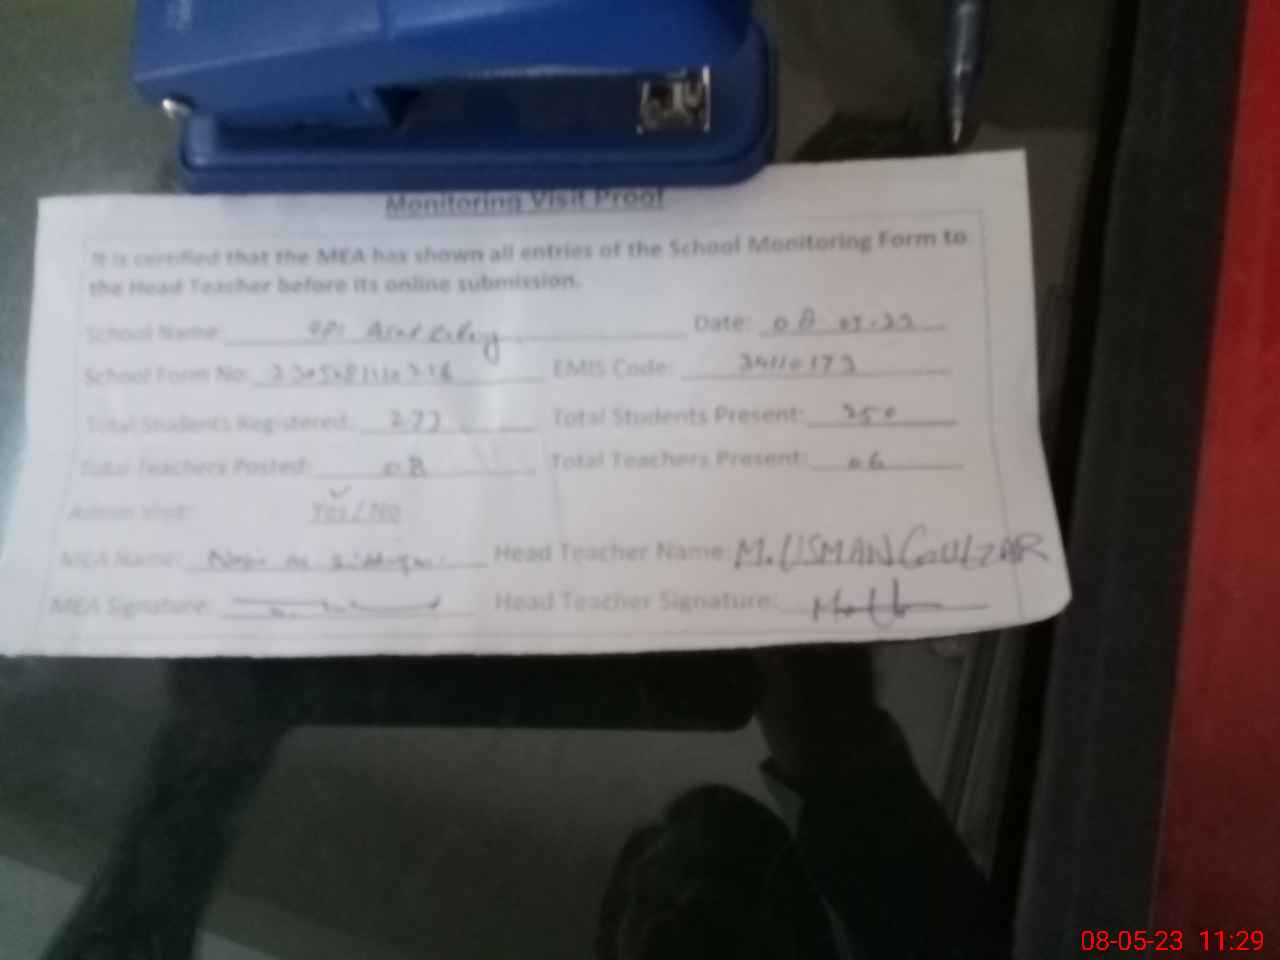 Monitoring Visit Proof
It is certified that the MEA has shown all entries of the School Monitoring Form to
the Head Teacher before its online submission.
School Name: Date: 08 05-23
School Form No: EMIS Code: 34110173
Total Students Registered: 273 Total Students Present: 250
Total Teachers Posted: 08 Total Teachers Present: 06
Admin Visit: Yes / No
MEA Name: Head Teacher Name: M. USMAN GULZAR
MEA Signature: Head Teacher Signature:
08-05-23 11:29